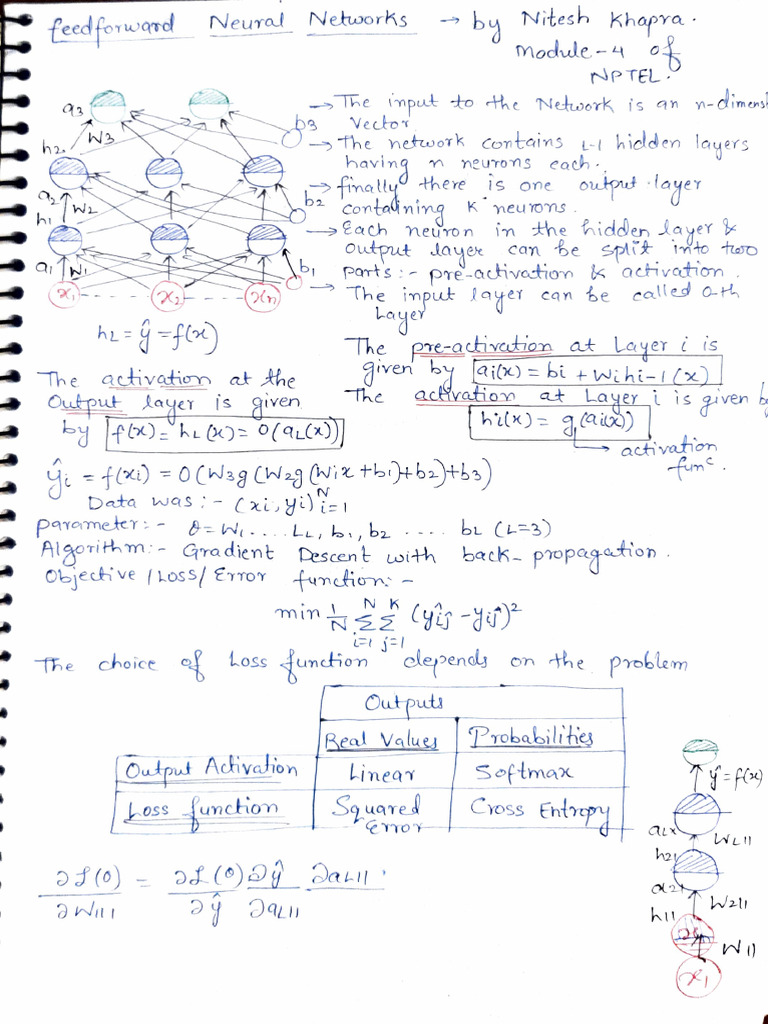 feedforward Neural Networks → by Nitesh Khapra.
Module-4 of
NPTEL.
a3
h2
W3
b3
a2
h1
W2
b2
a1
W1
b1
x1 x2 xn
hL = ŷ = f(x)
→ The input to the Network is an n-dimens
vector
→ The network contains L-1 hidden layers
having n neurons each.
→ finally there is one output layer
containing K neurons.
→ Each neuron in the hidden layer &
output layer can be split into two
parts:- pre-activation & activation.
→ The input layer can be called 0-th
Layer
The pre-activation at Layer i is
given by ai(x) = bi + wihi-1(x)
The activation at Layer i is given by
hi(x) = g(ai(x))
→ activation
funᶜ.
The activation at the
Output layer is given
by f(x) = hL(x) = O(aL(x))
ŷi = f(xi) = O(W3g(W2g(W1x + b1)+b2)+b3)
Data was:- (xi, yi)ᴺi=1
parameter:- θ = W1 .... LL, b1, b2 .... bL (L=3)
Algorithm:- Gradient Descent with back-propagation.
Objective/Loss/Error function:-
min 1/N Σᴺi=1 Σᴷj=1 (ŷij - yij)²
The choice of Loss function depends on the problem
Outputs
Real Values Probabilities
Output Activation Linear Softmax
Loss function Squared Error Cross Entropy
∂ℒ(θ)/∂W111 = ∂ℒ(θ)/∂ŷ ∂ŷ/∂aL11 ∂aL11.
ŷ = f(x)
aLx
WL11
h21
a21
W211
h11
W11
x1